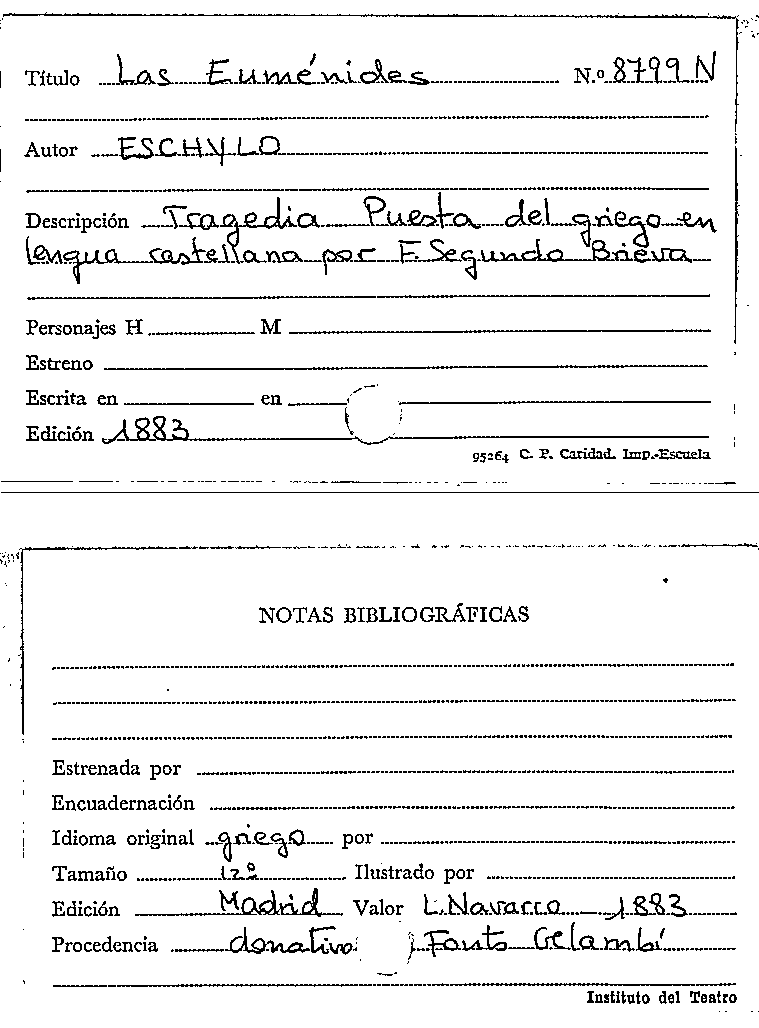 Título Las Euménides N.º 8799 N
Autor ESCHYLO
Descripción Tragedia Puesta del griego en
lengua castellana por F. Segundo Brieva
Personajes H M
Estreno
Escrita en en
Edición 1883
95264 C. P. Caridad. Imp.-Escuela
NOTAS BIBLIOGRÁFICAS
Estrenada por
Encuadernación
Idioma original griego por
Tamaño 12º Ilustrado por
Edición Madrid Valor L. Navarro 1883
Procedencia donativo
Instituto del Teatro